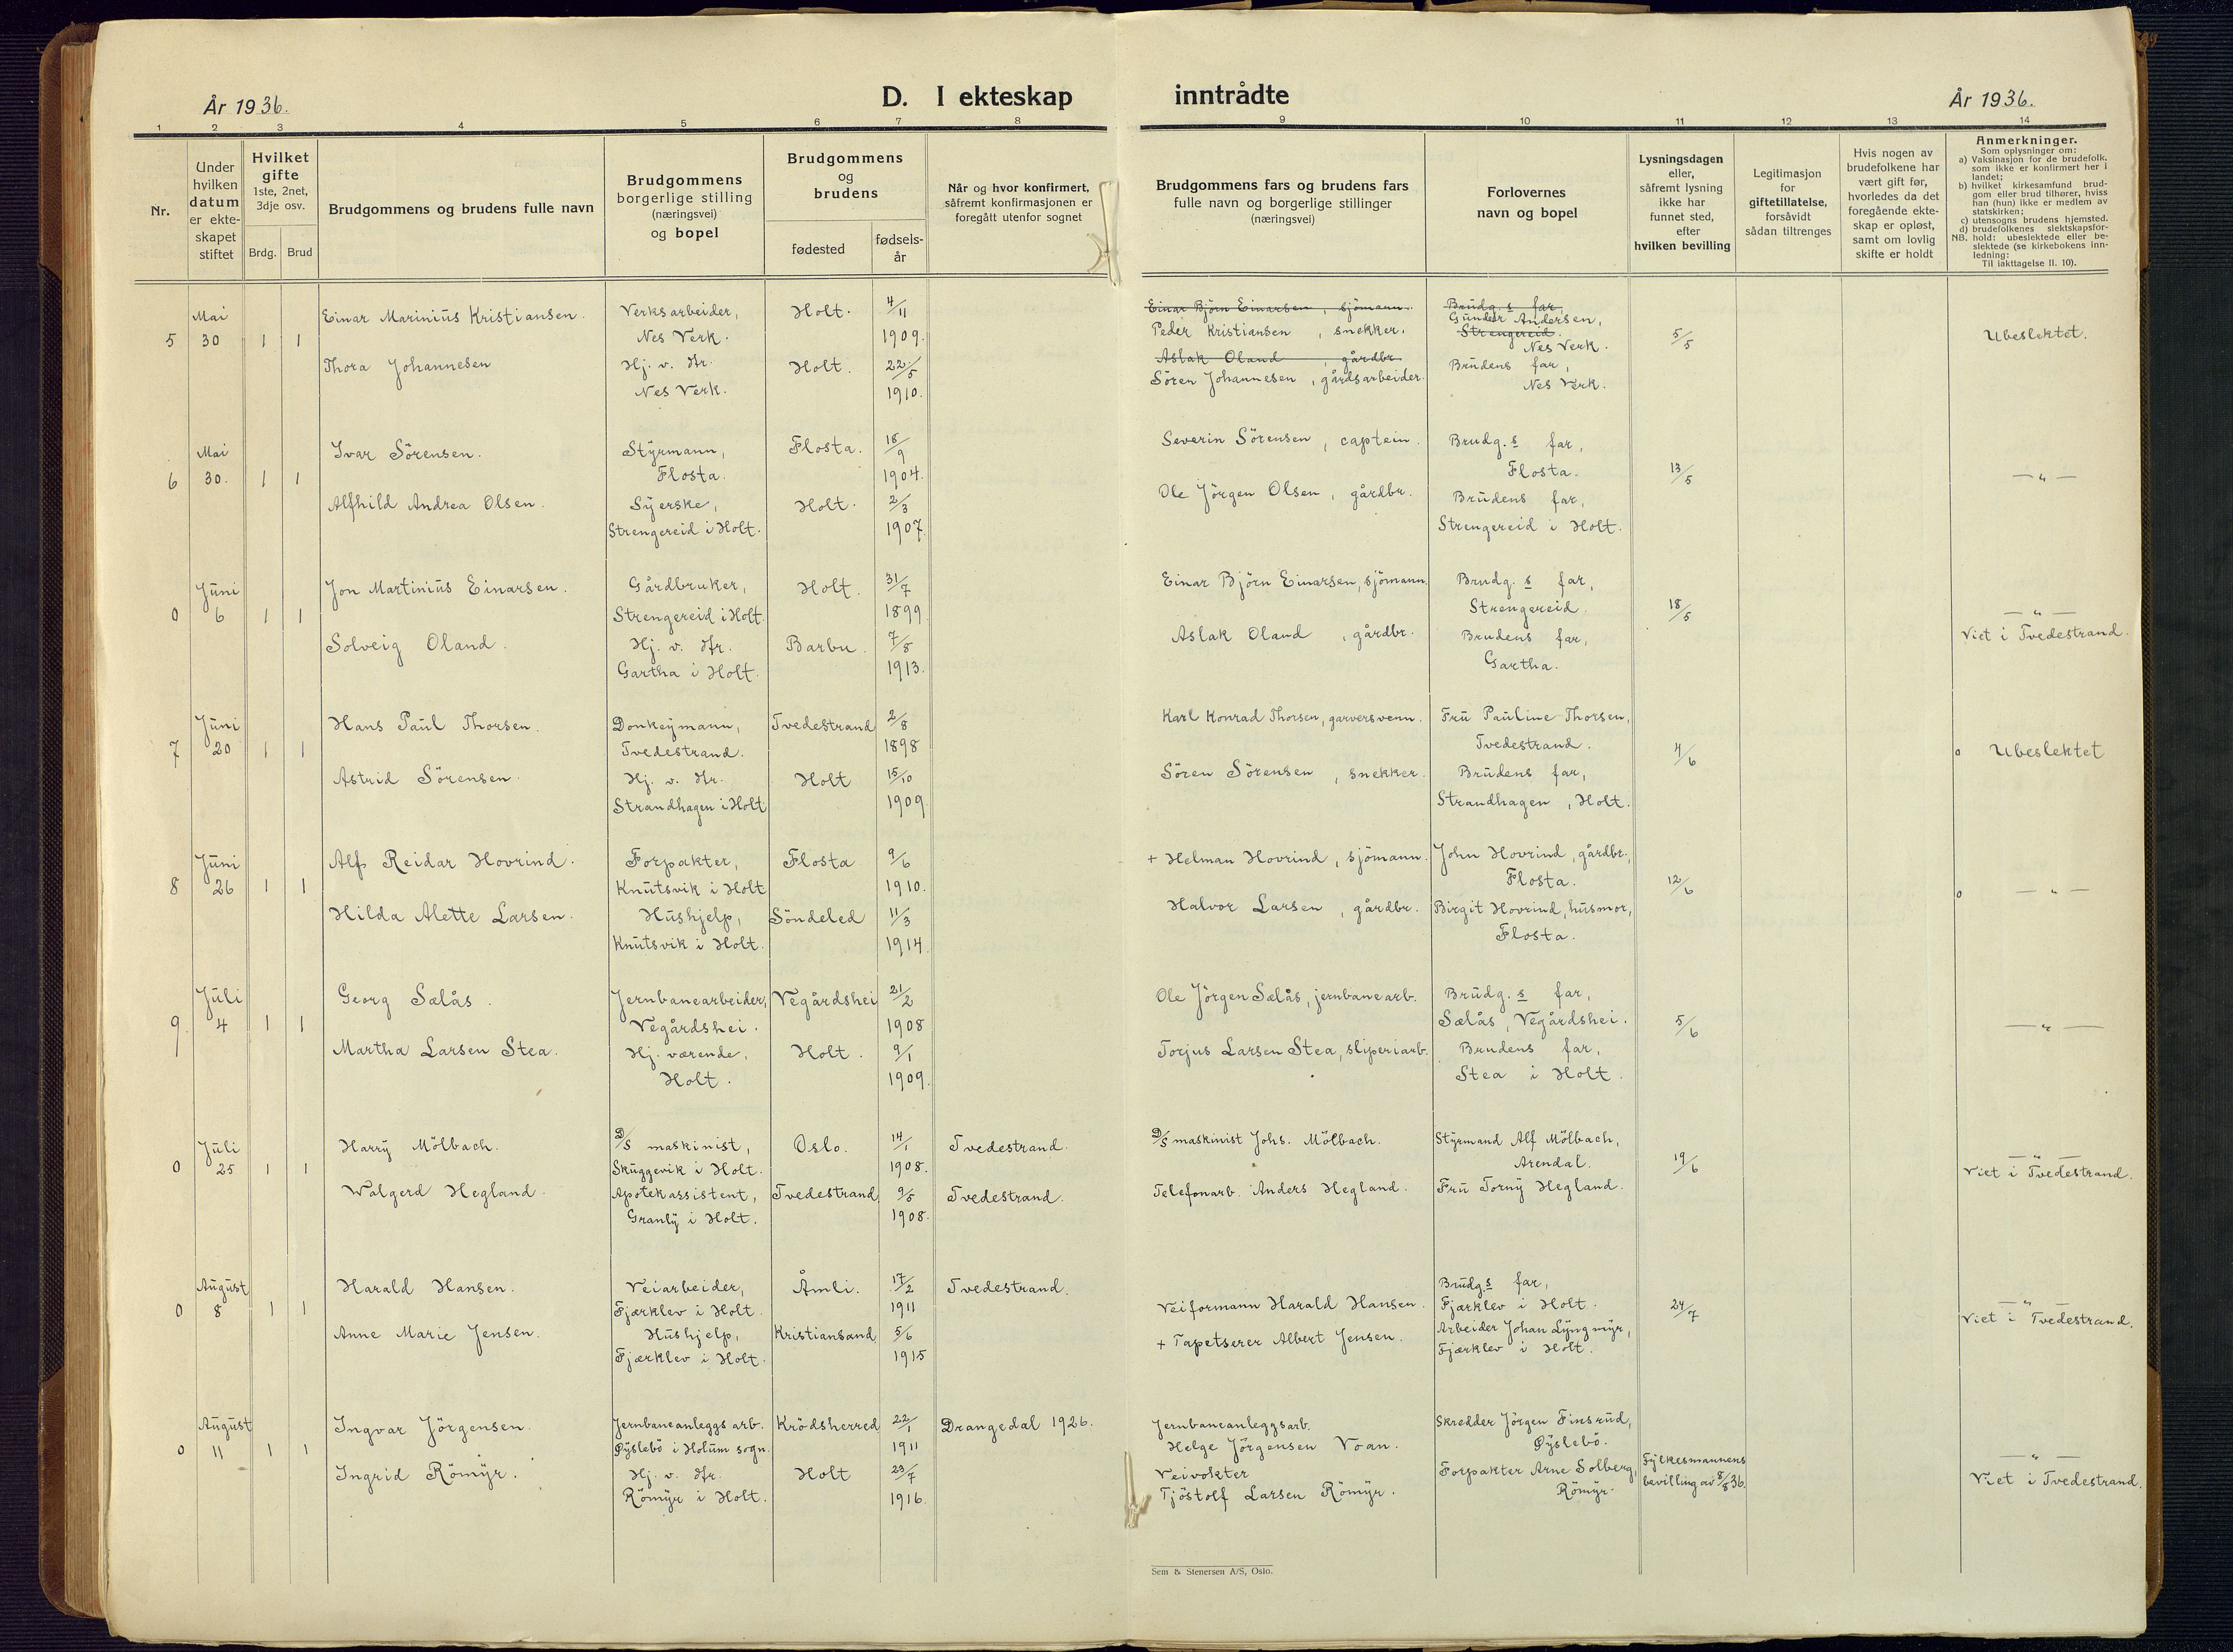 År 1936.
D. I ekteskap inntrådte
År 1936.
1 2 3 4 5 6 7 8 9 10 11 12 13 14
Nr.
Under hvilken datum er ekte-skapet stiftet
Hvilket gifte
1ste, 2net, 3dje osv.
Brdg. Brud
Brudgommens og brudens fulle navn
Brudgommens
borgerlige stilling
(næringsvei)
og bopel
Brudgommens
og
brudens
fødested
fødsels-
år
Når og hvor konfirmert,
såfremt konfirmasjonen er
foregått utenfor sognet
Brudgommens fars og brudens fars
fulle navn og borgerlige stillinger
(næringsvei)
Forlovernes
navn og bopel
Lysningsdagen
eller,
såfremt lysning
ikke har
funnet sted,
efter
hvilken bevilling
Legitimasjon
for
giftetillatelse,
forsåvidt
sådan tiltrenges
Hvis nogen av
brudefolkene har
vært gift før,
hvorledes da det
foregående ekte-
skap er opløst,
samt om lovlig
skifte er holdt
Anmerkninger.
Som oplysninger om:
a) Vaksinasjon for de brudefolk.
som ikke er konfirmert her i
landet;
b) hvilket kirkesamfund brud-
gom eller brud tilhører, hviss
han (hun) ikke er medlem av
statskirken;
c) utensogns brudens hjemsted.
d) brudefolkenes slektskapsfor-
NB. hold: ubeslektede eller be-
slektede (se kirkebokens inn-
ledning:
Til iakttagelse II. 10).
5 Mai 30 1 1
Einar Marinius Kristiansen.
Verksarbeider,
Nes Verk.
Holt. 4/11 1909.
Einar Björn Einarsen, sjömann.
Peder Kristiansen, snekker.
Brudg.s far,
Gunder Andersen,
Strengereid.
Nes Verk.
5/5
Ubeslektet.
Thora Johannesen
Hj. v. Hr.
Nes Verk.
Holt. 22/5 1910.
Aslak Oland, gårdbr.
Sören Johannesen, gårdsarbeider.
Brudens far,
Nes Verk.
6 Mai 30. 1 1
Ivar Sörensen.
Styrmann,
Flosta.
Flosta. 18/9 1904.
Severin Sörensen, captein.
Brudg.s far,
Flosta.
13/5
— " —
Alfhild Andrea Olsen.
Syerske,
Strengereid i Holt.
Holt. 2/3 1907.
Ole Jörgen Olsen, gårdbr.
Brudens far,
Strengereid i Holt.
0 Juni 6 1 1
Jon Martinius Einarsen.
Gårdbruker,
Strengereid i Holt.
Holt. 31/7 1899
Einar Björn Einarsen, sjömann.
Brudg.s far,
Strengereid.
18/5
— " —
Viet i Tvedestrand.
Solveig Oland.
Hj. v. Hr.
Gartha i Holt.
Barbu. 7/8 1913.
Aslak Oland, gårdbr.
Brudens far,
Gartha.
7 Juni 20 1 1
Hans Paul Thorsen.
Donkeymann,
Tvedestrand.
Tvedestrand 2/8 1898
Karl Konrad Thorsen, garversvenn.
Fru Pauline Thorsen,
Tvedestrand.
4/6
o Ubeslektet
Astrid Sörensen.
Hj. v. Hr.
Strandhagen i Holt
Holt 15/10 1909.
Sören Sörensen, snekker.
Brudens far,
Strandhagen, Holt.
8 Juni 26 1 1
Alf Reidar Hovrind.
Forpakter,
Knutsvik i Holt
Flosta 9/6 1910.
+ Helman Hovrind, sjömann.
John Hovrind, gårdbr.,
Flosta.
12/6
o — " —
Hilda Alette Larsen.
Hushjelp,
Knutsvik i Holt.
Söndeled 11/3 1914.
Halvor Larsen, gårdbr.
Birgit Hovrind, husmor,
Flosta.
9. Juli 4 1 1
Georg Sælås.
Jernbanearbeider,
Vegårdshei.
Vegårdshei 21/2 1908
Ole Jörgen Sælås, jernbanearb.
Brudg.s far,
Sælås, Vegårdshei.
5/6
— " —
Martha Larsen Stea.
Hj. værende,
Holt.
Holt. 9/1 1909.
Torjus Larsen Stea, sliperiarb.
Brudens far,
Stea i Holt.
0 Juli 25 1 1
Harry Mölbach.
D/S maskinist,
Skuggevik i Holt.
Oslo. 14/1 1908.
Tvedestrand.
D/S maskinist Johs. Mölbach.
Styrmand Alf Mölbach,
Arendal.
19/6
— " —
Viet i Tvedestrand.
Walgerd Hegland.
Apotekassistent,
Granly i Holt.
Tvedestrand 9/5 1908.
Tvedestrand.
Telefonarb. Anders Hegland.
Fru Torny Hegland.
0 August 8 1 1
Harald Hansen.
Veiarbeider,
Fjærklev i Holt.
Åmli. 17/2 1911
Tvedestrand.
Veiformann Harald Hansen.
Brudg.s far,
Fjærklev i Holt.
24/7
— " —
Viet i Tvedestrand.
Anne Marie Jensen.
Hushjelp,
Fjærklev i Holt.
Kristiansand 5/6 1915
+ Tapetserer Albert Jensen.
Arbeider Johan Lyngmyr,
Fjærklev i Holt.
0 August 11 1 1
Ingvar Jörgensen.
Jernbaneanleggsarb.
Øyslebö i Holum sogn.
Krödsherred 22/1 1911
Drangedal 1926.
Jernbaneanleggsarb.
Helge Jörgensen Voan.
Skredder Jörgen Finsrud,
Øyslebö.
Fylkesmannens
bevilling av 5/8 36.
— " —
Viet i Tvedestrand.
Ingrid Römyr.
Hj. v. Hr.
Römyr i Holt.
Holt 23/7 1916.
Veivokter
Tjöstolf Larsen Römyr.
Forpakter Arne Solberg,
Römyr.
Sem & Stenersen A/S, Oslo.